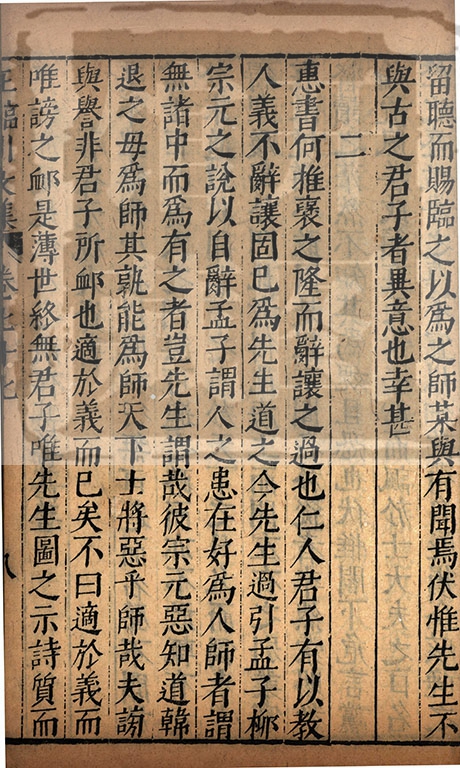 留聽而賜臨之以爲之師某與有聞焉伏惟先生不
與古之君子者異意也幸甚
二
惠書何推襃之隆而辭讓之過也仁人君子有以教
人義不辭讓固已爲先生道之今先生過引孟子柳
宗元之說以自辭孟子謂人之患在好爲人師者謂
無諸中而爲有之者豈先生謂哉彼宗元惡知道韓
退之毋爲師其孰能爲師天下士將惡乎師哉夫謗
與譽非君子所卹也適於義而已矣不曰適於義而
唯謗之卹是薄世終無君子唯先生圖之示詩質而
王臨川文集 卷七十七 八